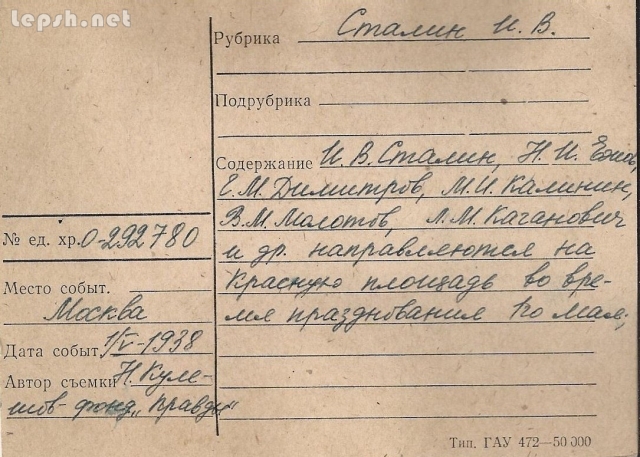 lepsh.net
Рубрика Сталин И. В.
Подрубрика
Содержание И. В. Сталин, Н. И. Ежов,
Г. М. Димитров, М. И. Калинин,
В. М. Молотов, Л. М. Каганович
и др. направляются на
Красную площадь во вре-
мя празднования 1го Мая,
№ ед. хр. 0-292780
Место событ.
Москва
Дата событ. 1/V-1938
Автор съемки Н. Куле-
шов фонд „Правды“
Тип. ГАУ 472—50 000